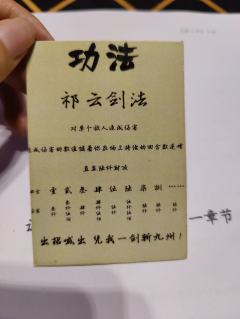 功法
祁云剑法
对单个敌人造成伤害
造成伤害的数值随着你在场上持续的回合数递增
直至陆仟封顶
壹 贰 叁 肆 伍 陆 柒 捌 ……
出招喊出 凭我一剑斩九州！
一章节